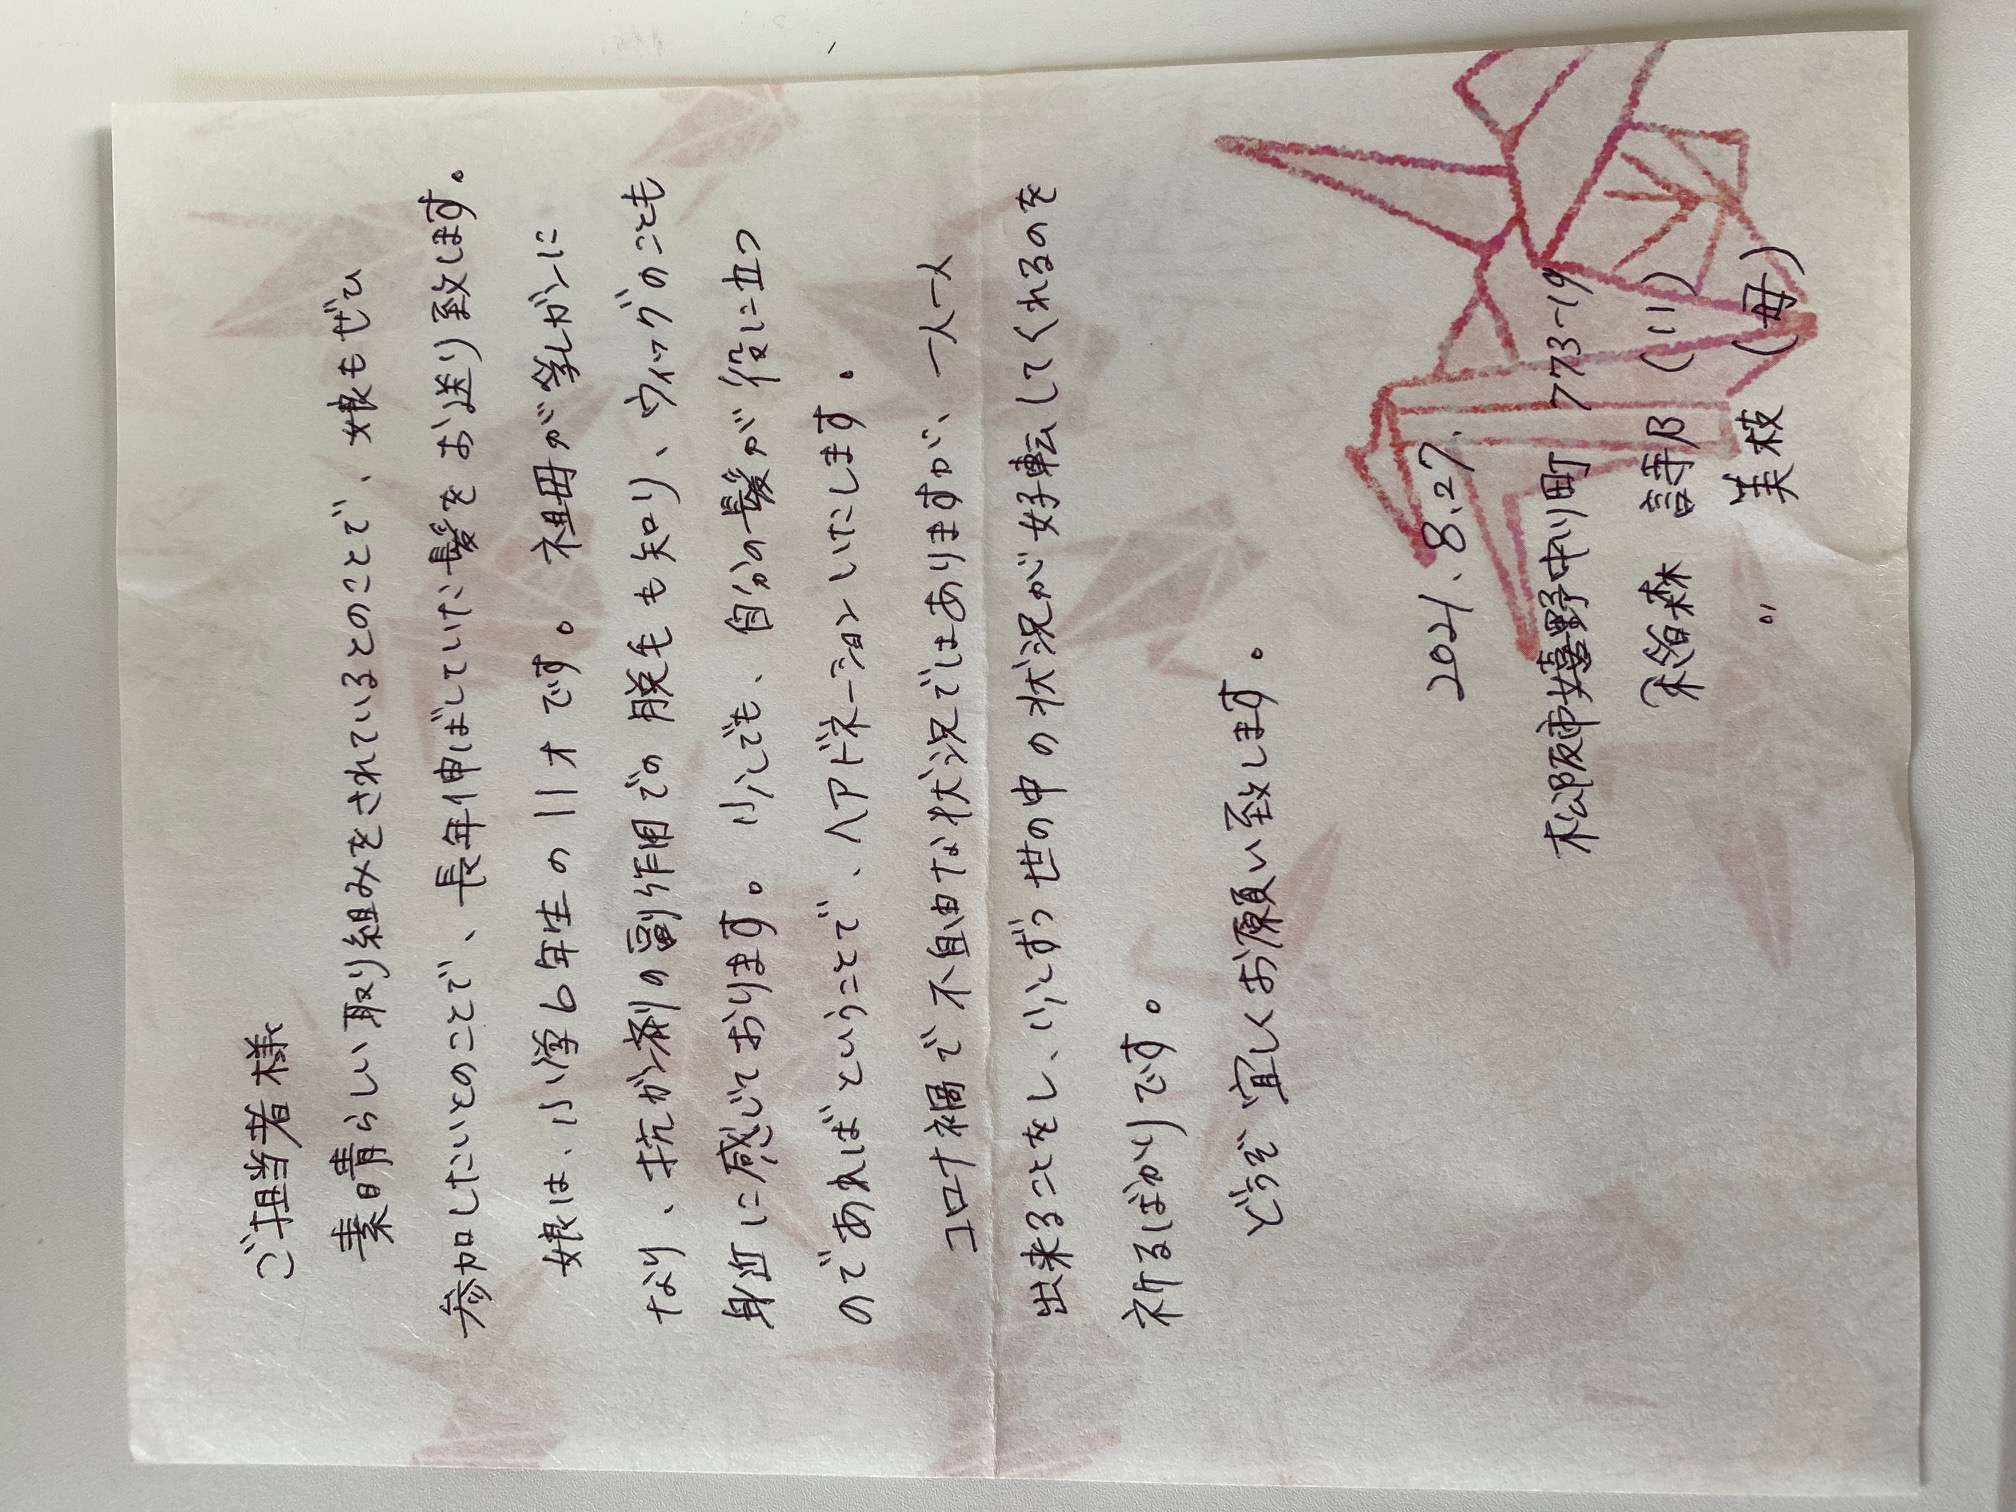 ご担当者様
素晴らしい取り組みをされているとのことで、娘もぜひ
参加したいとのことで、長年伸ばしていた髪をお送り致します。
娘は、小学6年生の11才です。祖母が乳ガンに
なり、抗がん剤の副作用での脱毛も知り、ウィッグのことも
身近に感じております。少しでも、自分の髪が役に立つ
のであればということで、ヘアドネーションいたします。
コロナ禍で不自由な状況ではありますが、一人一人
出来ることをし、少しずつ世の中の状況が好転してくれるのを
祈るばかりです。
どうぞ宜しくお願い致します。
2021.8.27.
松阪市嬉野中川町 773-19
森 詩乃 (11)
〃 美枝 (母)